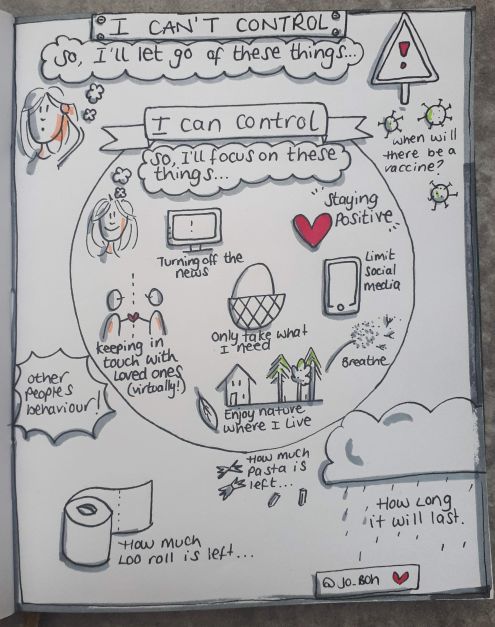 I CAN'T CONTROL
So, I'll let go of these things...
I can control
So, I'll focus on these
things...
when will
there be a
vaccine?
Staying
Positive
Turning off the
news
Limit
Social
media
Only take what
I need
keeping in
touch with
Loved ones
(virtually!)
Breathe
Enjoy nature
where I Live
other
People's
behaviour!
How much
Pasta is
left...
How Long
it will last.
How much
Loo roll is left...
@Jo_Boh